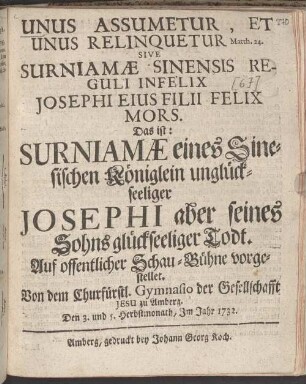 UNUS ASSUMETUR, ET
UNUS RELINQUETUR Matth. 24.
SIVE
SURNIAMÆ SINENSIS RE-
GULI INFELIX
[67]
JOSEPHI EIUS FILII FELIX
MORS.
Das ist:
SURNIAMÆ eines Sine-
sischen Königlein unglück-
seeliger
JOSEPHI aber seines
Sohns glückseeliger Todt.
Auf offentlicher Schau-Bühne vorge-
stellet.
Von dem Churfürstl. Gymnasio der Gesellschafft
JESU zu Amberg.
Den 3. und 5. Herbstmonath, Im Jahr 1732.
Amberg, gedruckt bey Johann Georg Koch.